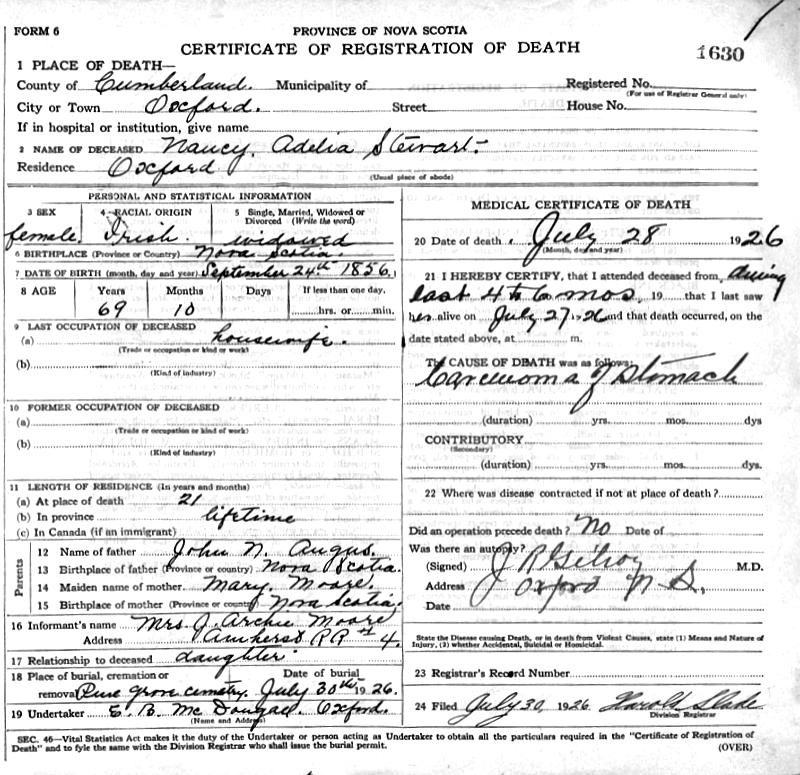 FORM 6
PROVINCE OF NOVA SCOTIA
CERTIFICATE OF REGISTRATION OF DEATH
1630
1 PLACE OF DEATH—
County of Cumberland. Municipality of Registered No.
(For use of Registrar General only)
City or Town Oxford. Street House No.
If in hospital or institution, give name
2 NAME OF DECEASED Nancy Adelia Stewart
Residence Oxford
(Usual place of abode)
PERSONAL AND STATISTICAL INFORMATION
3 SEX 4 RACIAL ORIGIN 5 Single, Married, Widowed or Divorced (Write the word)
female. Irish. widowed
6 BIRTHPLACE (Province or Country) Nova Scotia.
7 DATE OF BIRTH (month, day, and year) September 24th 1856.
8 AGE Years Months Days If less than one day,
69 10 hrs. or min.
9 LAST OCCUPATION OF DECEASED
(a) housewife.
(Trade or occupation or kind of work)
(b)
(Kind of industry)
10 FORMER OCCUPATION OF DECEASED
(a)
(Trade or occupation or kind of work)
(b)
(Kind of industry)
11 LENGTH OF RESIDENCE (In years and months)
(a) At place of death 21
(b) In province lifetime
(c) In Canada (if an immigrant)
Parents
12 Name of father John N. Angus.
13 Birthplace of father (Province or country) Nova Scotia.
14 Maiden name of mother Mary Moore.
15 Birthplace of mother (Province or country) Nova Scotia.
16 Informant's name Mrs. J. Archie Moore
Address Amherst RR # 4.
17 Relationship to deceased daughter
18 Place of burial, cremation or removal Date of burial
Pine grove cemetry. July 30th 1926.
19 Undertaker E. B. McDougall Oxford.
(Name and Address)
MEDICAL CERTIFICATE OF DEATH
20 Date of death July 28 1926
(Month, day and year)
21 I HEREBY CERTIFY, that I attended deceased from during
last 4 to 6 mos, 19 that I last saw
her alive on July 27 1926 and that death occurred, on the
date stated above, at m.
The CAUSE OF DEATH was as follows:
Carcinoma of Stomach
(duration) yrs. mos. dys
CONTRIBUTORY
(Secondary)
(duration) yrs. mos. dys.
22 Where was disease contracted if not at place of death?
Did an operation precede death? No Date of
Was there an autopsy?
(Signed) J. R. Gilroy M.D.
Address Oxford N.S.
Date
State the Disease causing Death, or in death from Violent Causes, state (1) Means and Nature of
Injury, (2) whether Accidental, Suicidal or Homicidal.
23 Registrar's Record Number
24 Filed July 30, 1926. Harold Slade
Division Registrar
SEC. 46—Vital Statistics Act makes it the duty of the Undertaker or person acting as Undertaker to obtain all the particulars required in the "Certificate of Registration of
Death" and to fyle the same with the Division Registrar who shall issue the burial permit.
(OVER)